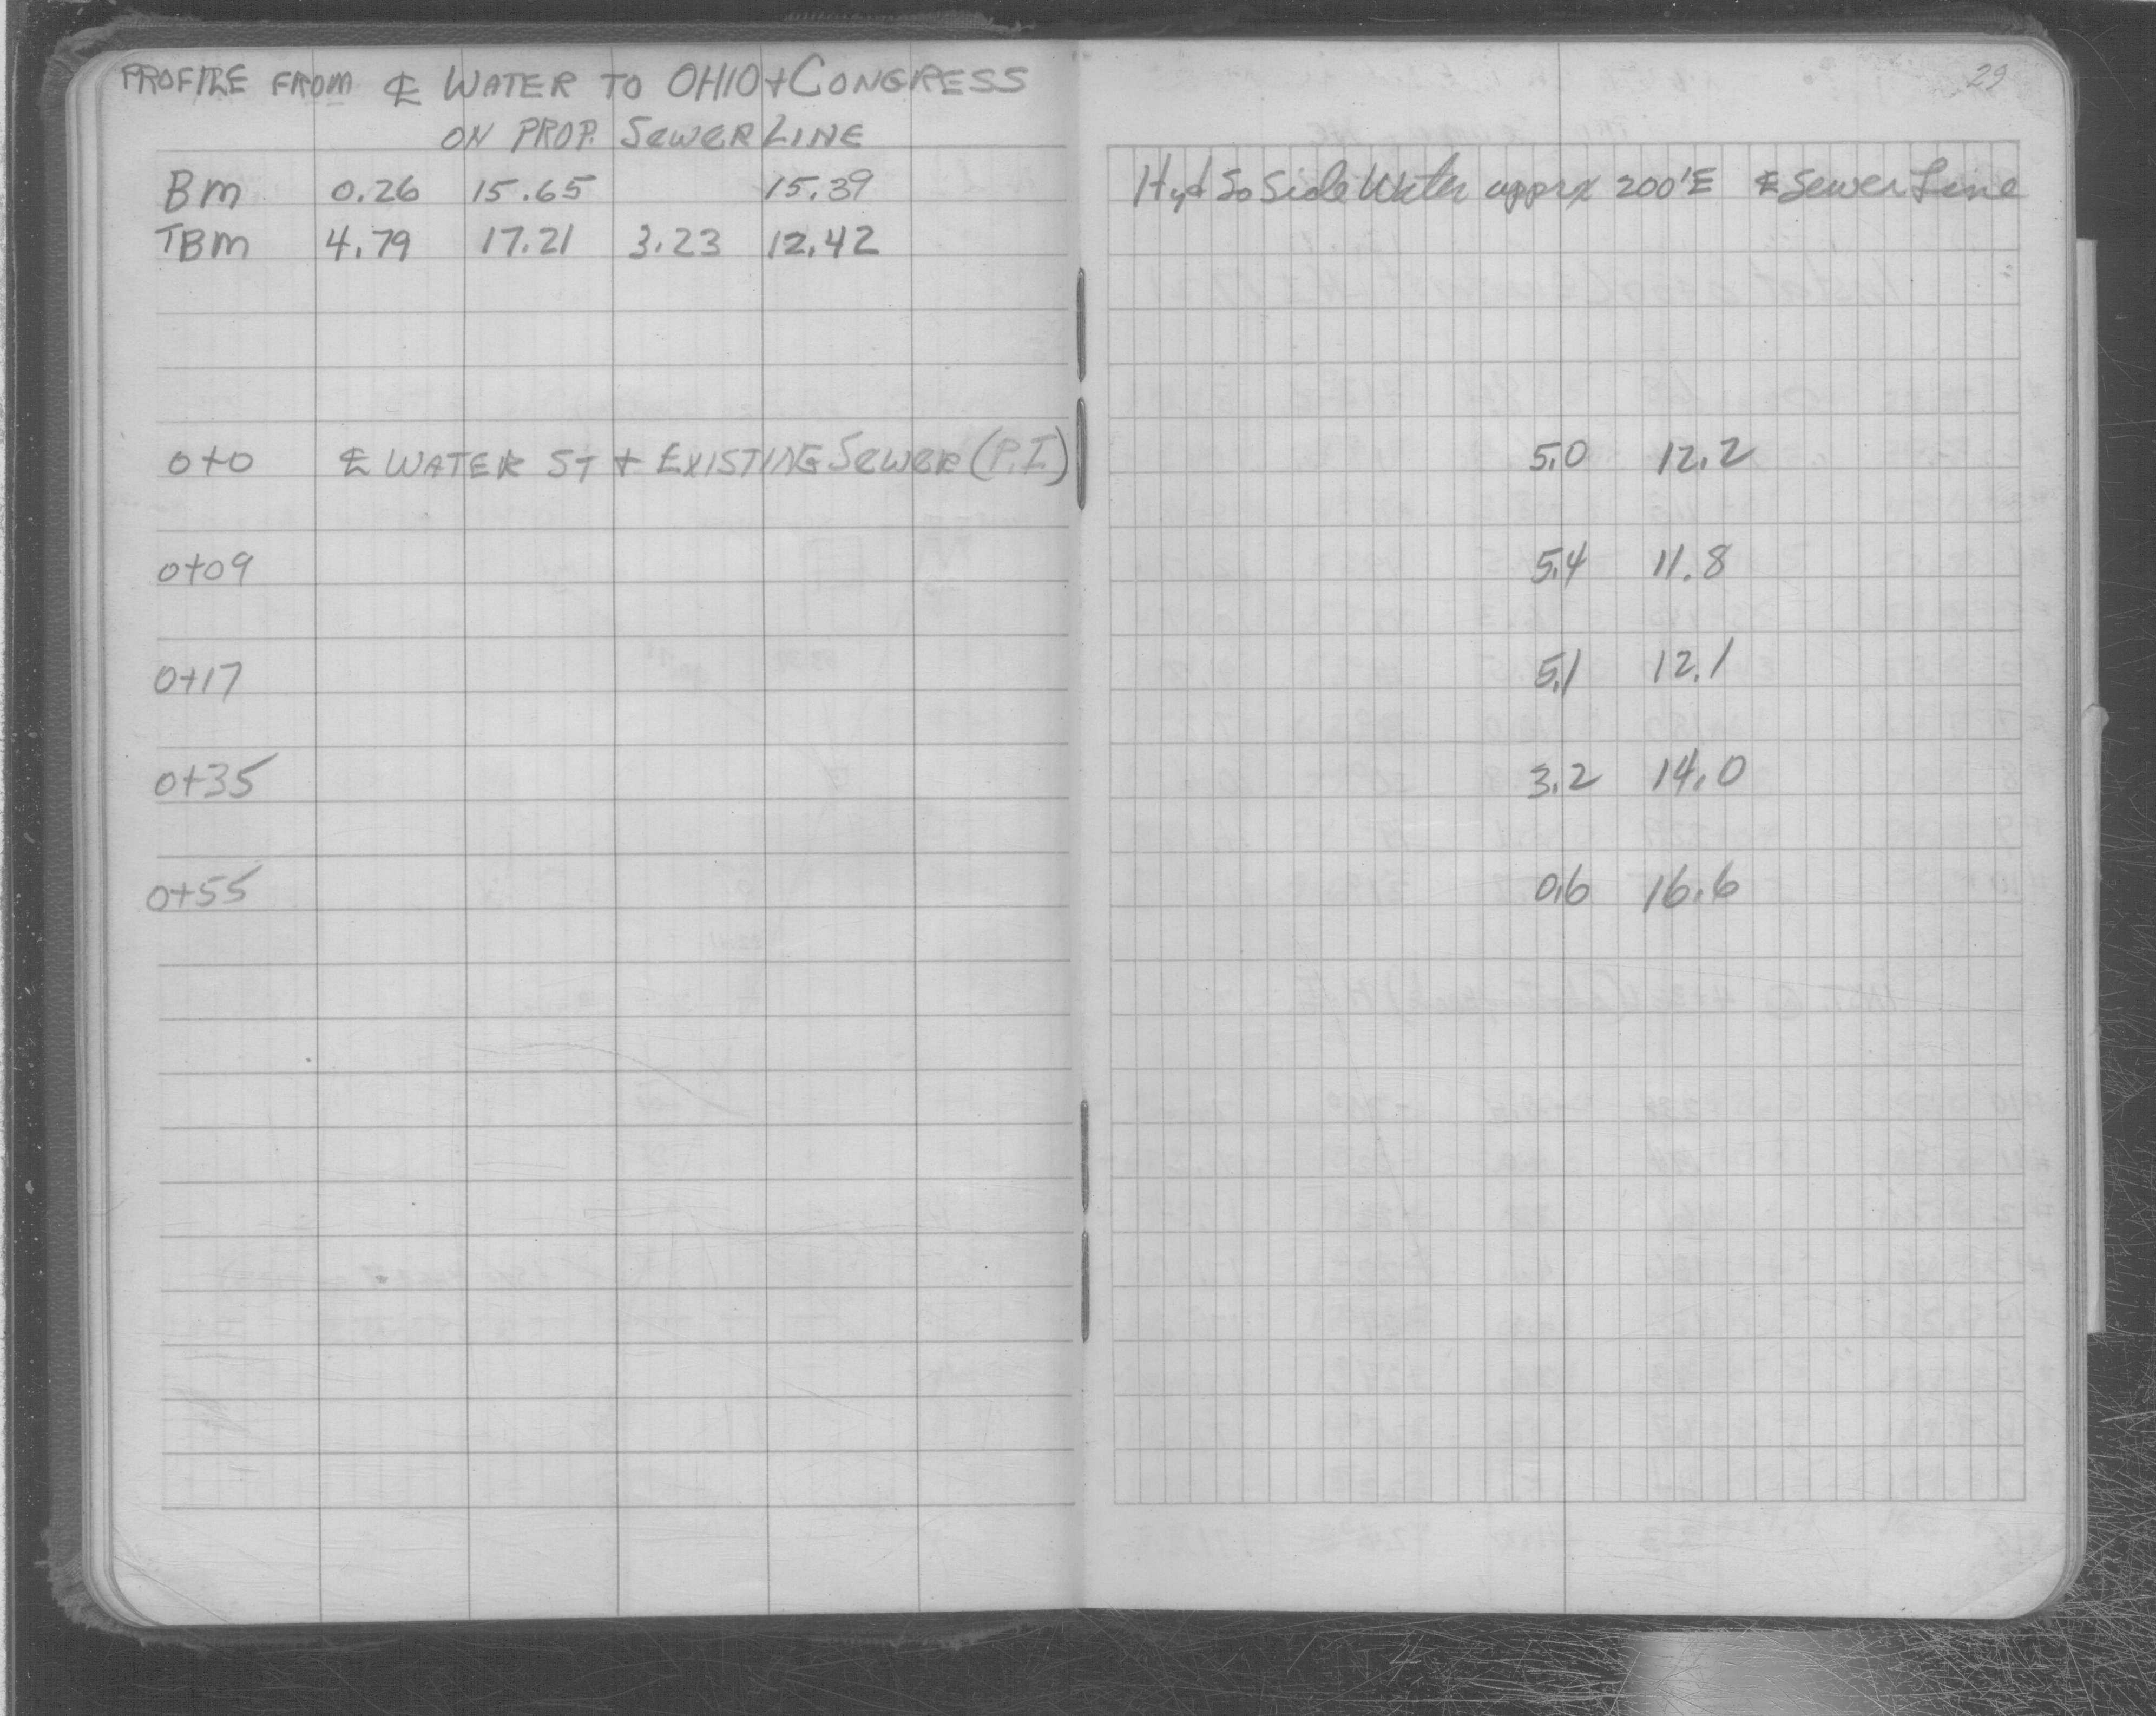 PROFILE FROM ℄ WATER TO OHIO + CONGRESS
ON PROP. SEWER LINE
29
BM 0.26 15.65 15.39 Hyd So Side Water apprx 200'E ℄ Sewer Line
TBM 4.79 17.21 3.23 12.42
0+0 ℄ WATER ST + EXISTING SEWER (P.I.) 5.0 12.2
0+09 5.4 11.8
0+17 5.1 12.1
0+35 3.2 14.0
0+55 0.6 16.6